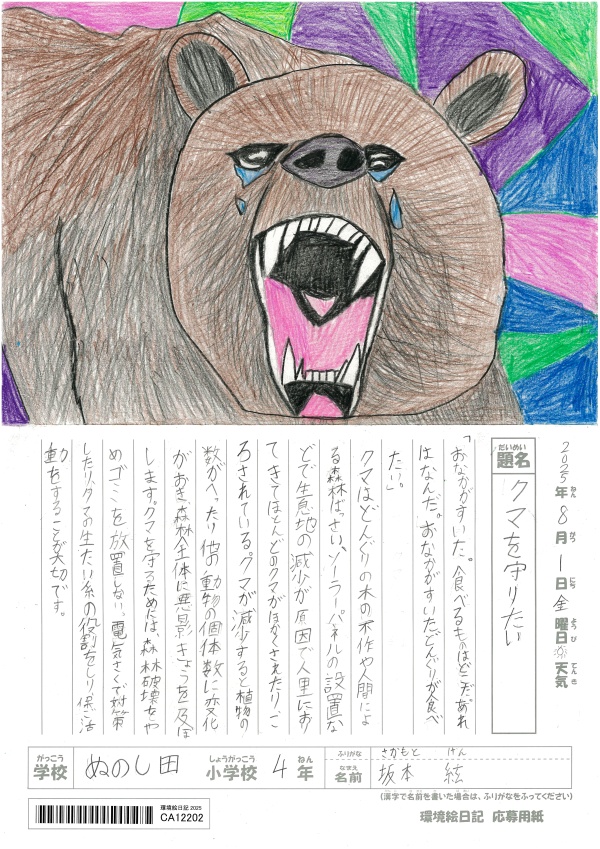 2025年8月1日金曜日天気
ねん がつ にち ようび てんき
だいめい
題名 クマを守りたい
「おなかがすいた。食べるものはどこだ。あれ
はなんだ。おなかがすいたどんぐりが食べ
たい。」
クマはどんぐりの木の不作や人間によ
る森林ばっさい、ソーラーパネルの設置な
どで生息地の減少が原因で人里におり
てきてほとんどのクマがほかくされたり、こ
ろされている。クマが減少すると植物の
数がへったり他の動物の個体数に変化
がおき森林全体に悪影きょうを及ぼ
します。クマを守るためには、森林破壊をや
めゴミを放置しない、電気さくで対策
したり、クマの生たい系の役割をしり保ご活
動をすることが大切です。
がっこう しょうがっこう ねん
学校 ぬのし田 小学校 4年
ふりがな さかもと けん
なまえ
名前 坂本 絃
(漢字で名前を書いた場合は、ふりがなをふってください)
環境絵日記 2025
CA12202
環境絵日記 応募用紙